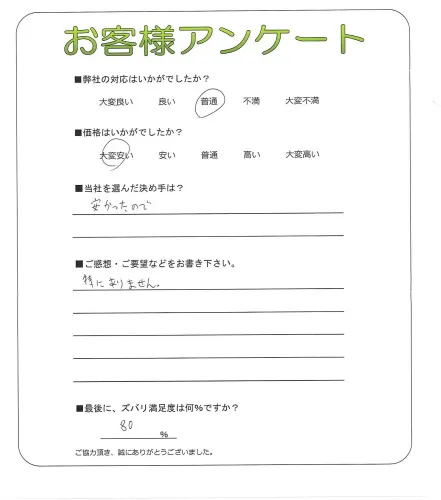 お客様アンケート
■弊社の対応はいかがでしたか？
大変良い 良い 普通 不満 大変不満
■価格はいかがでしたか？
大変安い 安い 普通 高い 大変高い
■当社を選んだ決め手は？
安かったので
■ご感想・ご要望などをお書き下さい。
特にありません。
■最後に、ズバリ満足度は何%ですか？
80
%
ご協力頂き、誠にありがとうございました。